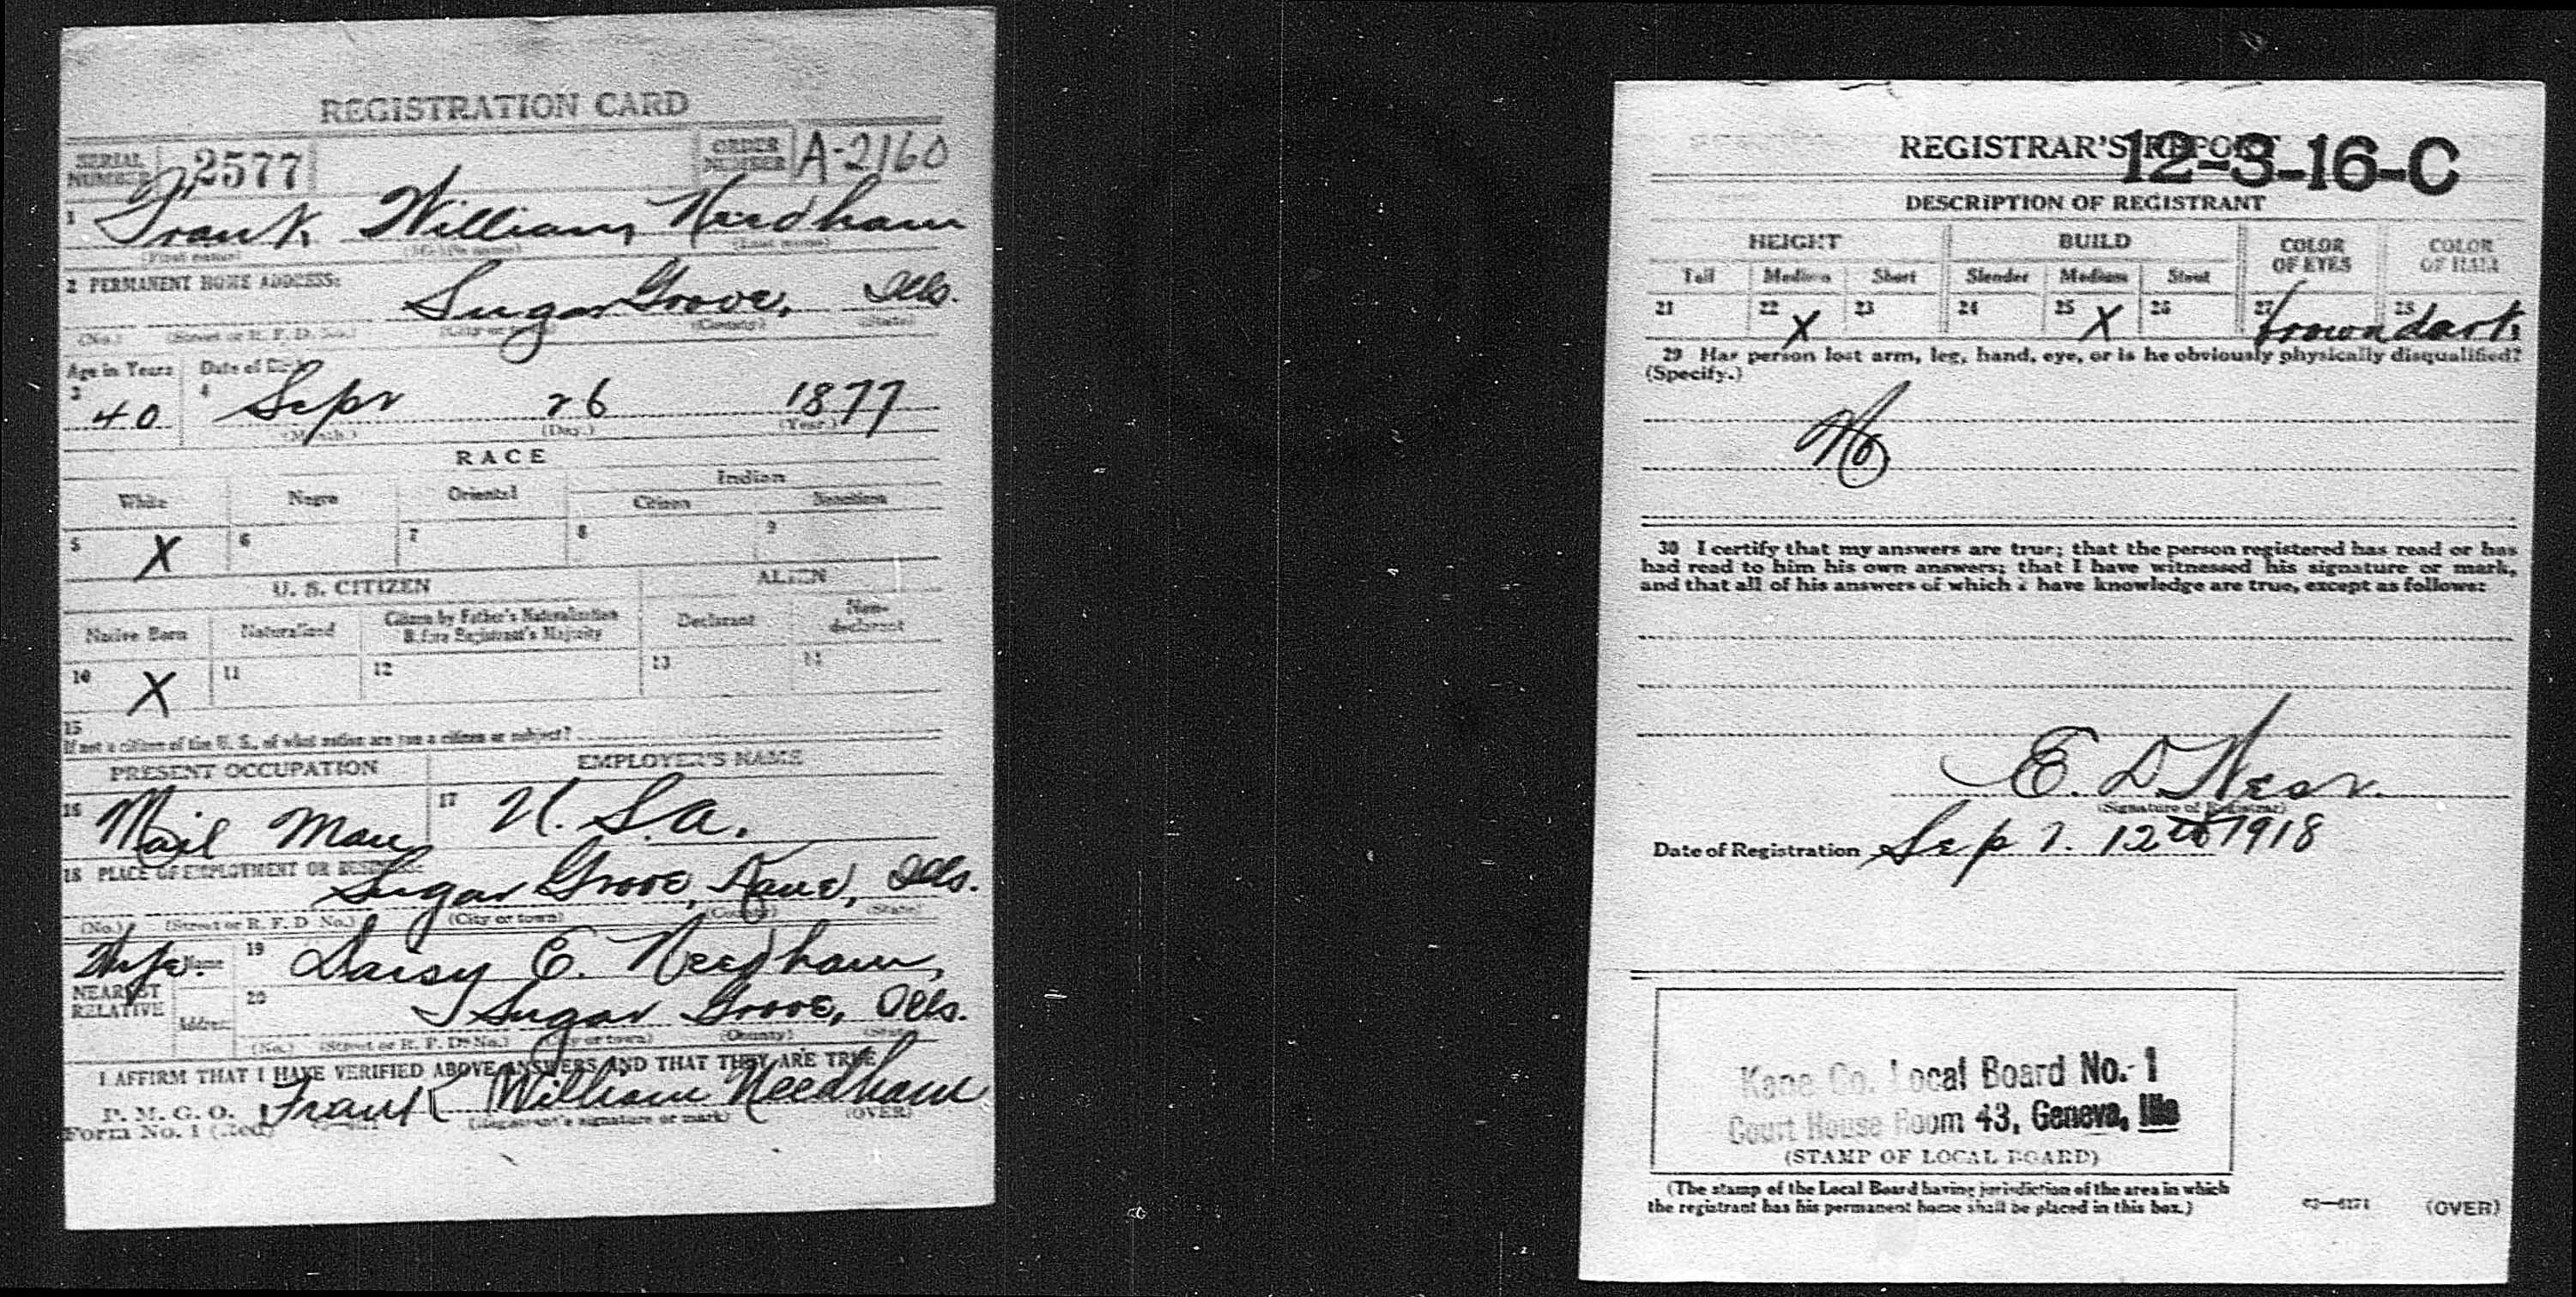 REGISTRATION CARD
SERIAL NUMBER 2577 ORDER NUMBER A-2160
1 Frank William Needham
(First name) (Middle name) (Last name)
2 PERMANENT HOME ADDRESS:
Sugar Grove, Ills.
(No.) (Street or R. F. D. No.) (City or town) (County) (State)
Age in Years Date of Birth
3 40 4 Sept 26 1877
(Month.) (Day.) (Year.)
RACE
White Negro Oriental Indian
Citizen Noncitizen
5 X 6 7 8 9
U. S. CITIZEN ALIEN
Native Born Naturalized Citizen by Father's Naturalization Before Registrant's Majority Declarant Non-declarant
10 X 11 12 13 14
15
If not a citizen of the U. S., of what nation are you a citizen or subject?
PRESENT OCCUPATION EMPLOYER'S NAME
16 Mail Man 17 U. S. A.
18 PLACE OF EMPLOYMENT OR BUSINESS:
Sugar Grove, Kane, Ills.
(No.) (Street or R. F. D. No.) (City or town) (County) (State)
Wife. Name 19 Daisy E. Needham,
NEAREST RELATIVE Address 20 Sugar Grove, Ills.
(No.) (Street or R. F. D. No.) (City or town) (County) (State)
I AFFIRM THAT I HAVE VERIFIED ABOVE ANSWERS AND THAT THEY ARE TRUE
P. M. G. O. Frank William Needham
Form No. 1 (Red) (Registrant's signature or mark) (OVER)
REGISTRAR'S REPORT
12-3-16-C
DESCRIPTION OF REGISTRANT
HEIGHT BUILD COLOR OF EYES COLOR OF HAIR
Tall Medium Short Slender Medium Stout
21 22 X 23 24 25 X 26 27 brown 28 dark
29 Has person lost arm, leg, hand, eye, or is he obviously physically disqualified?
(Specify.)
No.
30 I certify that my answers are true; that the person registered has read or has
had read to him his own answers; that I have witnessed his signature or mark,
and that all of his answers of which I have knowledge are true, except as follows:
E. D.
(Signature of Registrar)
Date of Registration Sept. 12th 1918
Kane Co. Local Board No. 1
Court House Room 43, Geneva, Ills
(STAMP OF LOCAL BOARD)
(The stamp of the Local Board having jurisdiction of the area in which
the registrant has his permanent home shall be placed in this box.)
(OVER)